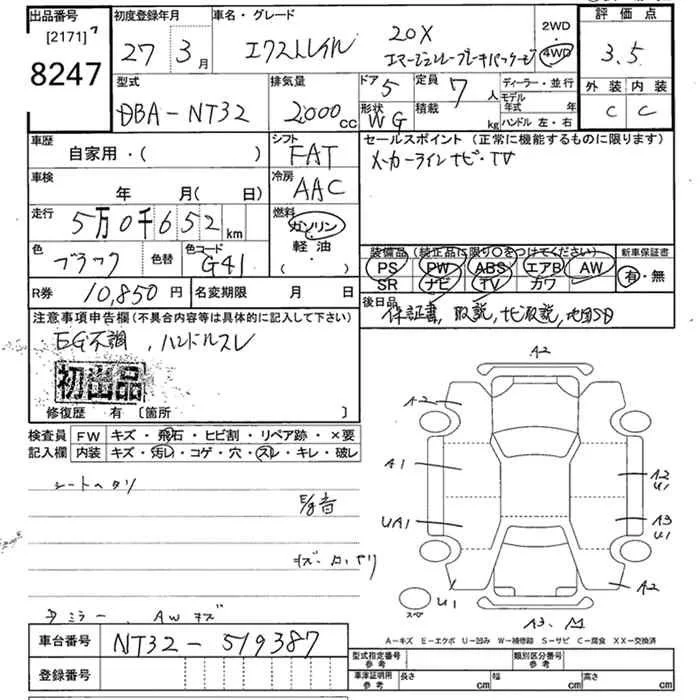 出品番号
[2171]
8247
初度登録年月
27 3月
車名・グレード
エクストレイル
20X
エマージェンシーブレーキパッケージ
2WD
・
4WD
評価点
3.5
外装 内装
C C
型式
DBA-NT32
排気量
2000cc
ドア
5
形状
WG
定員
7人
積載
kg
ディーラー・並行
モデル年式 年
ハンドル 左・右
車歴
自家用・( )
シフト
FAT
セールスポイント(正常に機能するものに限ります)
メーカーラインナビ・TV
車検
年 月( 日)
冷房
AAC
走行
5万0千652km
燃料
ガソリン
・
軽油
・
( )
色
ブラック
色替
色コード
G41
装備品(純正品に限り○をつけてください)
PS PW ABS エアB AW
SR ナビ TV カワ
新車保証書
有・無
R券
10,850円
名変期限 月 日
後日品
保証書, 取説, ナビ取説, 地図SD
注意事項申告欄(不具合内容等は具体的に記入して下さい)
EG不調, ハンドルスレ
初出品
修復歴 有 〔箇所 〕
検査員記入欄
FW キズ・飛石・ヒビ割・リペア跡・×要
内装 キズ・汚レ・コゲ・穴・スレ・キレ・破レ
シートヘタリ
E/g音
ミラー, AWキズ
A2
A2
A1
A2
U1
UA1
A3
U1
A2
スペア
U1
A3.
A-キズ E-エクボ U-凹み W-補修跡 S-サビ C-腐食 XX-交換済
車台番号
NT32-519387
登録番号
型式指定番号
参考
類別区分番号
参考
車庫証明用
参考
長さ cm
幅 cm
高さ cm